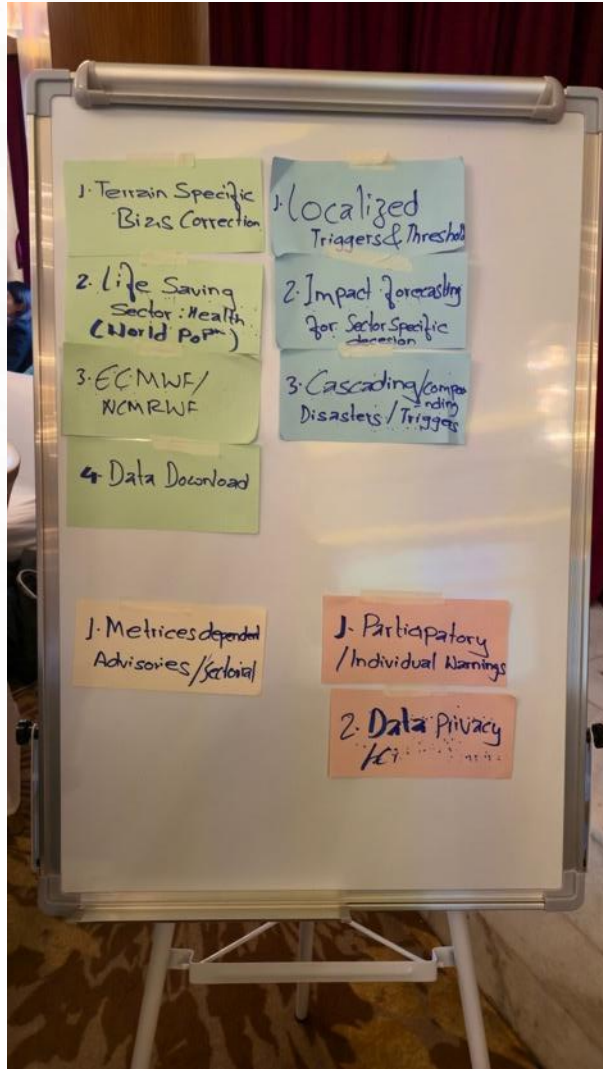 1. Terrain Specific
Bias Correction
2. Life Saving
Sector: Health
(World Popn)
3. ECMWF/
NCMRWF
4. Data Download
1. Localized
Triggers & Threshold
2. Impact forecasting
for Sector Specific
decesion
3. Cascading/compou
nding
Disasters/Triggers
1. Metrices depended
Advisories/Sectorial
1. Participatory
/Individual Warnings
2. Data Privacy